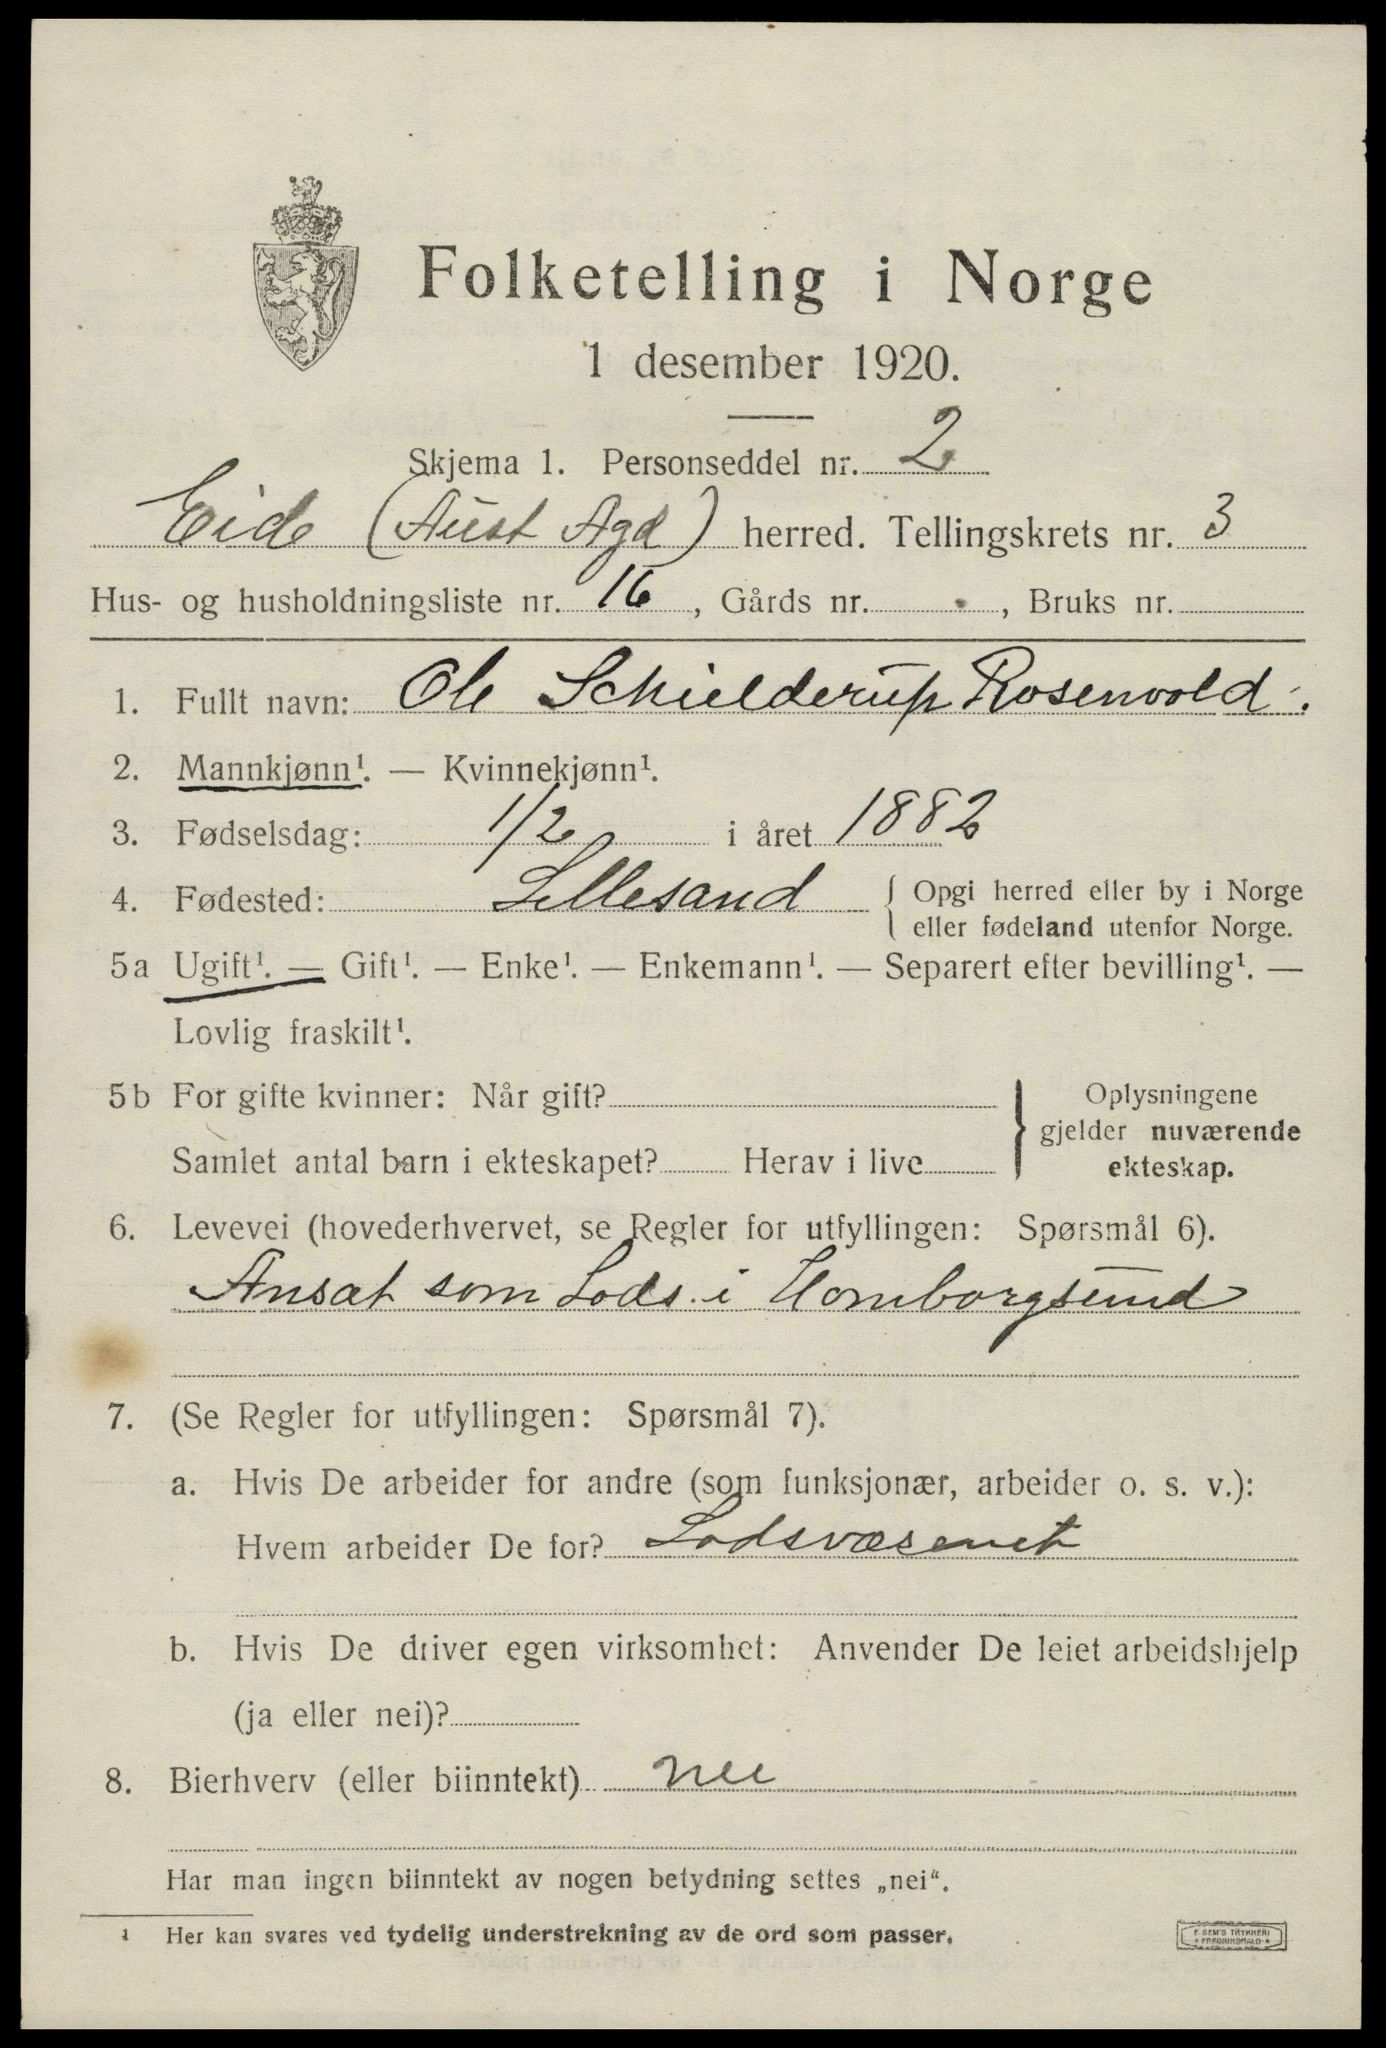 Folketelling i Norge
1 desember 1920.
Skjema 1. Personseddel nr. 2
Eide (Aust Agd) herred. Tellingskrets nr. 3
Hus- og husholdningsliste nr. 16, Gårds nr. , Bruks nr.
1. Fullt navn: Ole Schielderup Rosenvold.
2. Mannkjønn¹. — Kvinnekjønn¹.
3. Fødselsdag: 1/2 i året 1882
4. Fødested: Lillesand { Opgi herred eller by i Norge
eller fødeland utenfor Norge.
5a Ugift¹. — Gift¹. — Enke¹. — Enkemann¹. — Separert efter bevilling¹. —
Lovlig fraskilt¹.
5b For gifte kvinner: Når gift? } Oplysningene
gjelder nuværende
Samlet antal barn i ekteskapet? Herav i live
ekteskap.
6. Levevei (hovederhvervet, se Regler for utfyllingen: Spørsmål 6).
Ansat som Lods i Homborgsund
7. (Se Regler for utfyllingen: Spørsmål 7).
a. Hvis De arbeider for andre (som funksjonær, arbeider o. s. v.):
Hvem arbeider De for? Lodsvæsenet
b. Hvis De driver egen virksomhet: Anvender De leiet arbeidshjelp
(ja eller nei)?
8. Bierhverv (eller biinntekt) nei
Har man ingen biinntekt av nogen betydning settes „nei“.
¹ Her kan svares ved tydelig understrekning av de ord som passer.
E. SEM'S TRYKKERI
FREDRIKSHALD